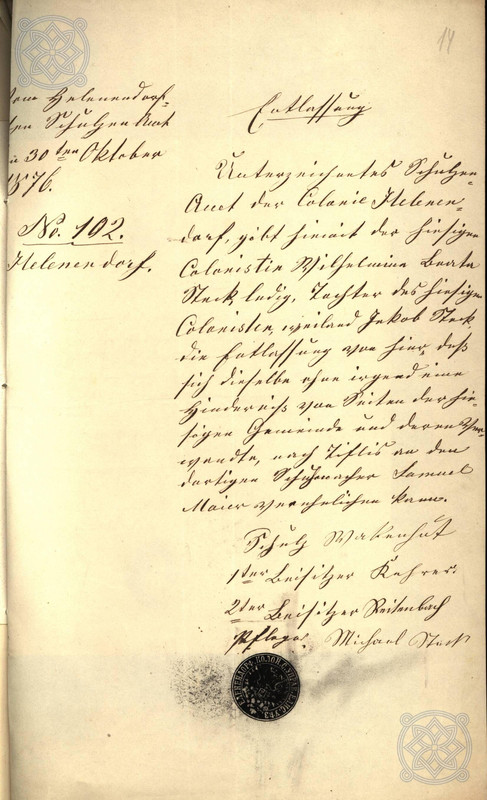 14
Vom Helenendorf-
schen Schulzen Amt
den 30ten Oktober
1876.
No. 102.
Helenendorf.
Entlassung
Unterzeichnetes Schulzen-
Amt der Colonie Helenen-
dorf, gibt hiemit der hiesigen
Colonistin Wilhelmine Beata
Steck, ledig, Tochter des hiesigen
Colonisten, weiland Jakob Steck,
die Entlassung von hier, daß
sich dieselbe ohne irgend eine
Hinderniß von Seiten der hie-
sigen Gemeinde und deren Ver-
wandte, nach Tiflis an den
dortigen Schuhmacher Samuel
Maier verehelichen kann.
Schulz Wakenhut
1ter Beisitzer Kehrer.
2ter Beisitzer Reitenbach
Pfleger Michael Steck